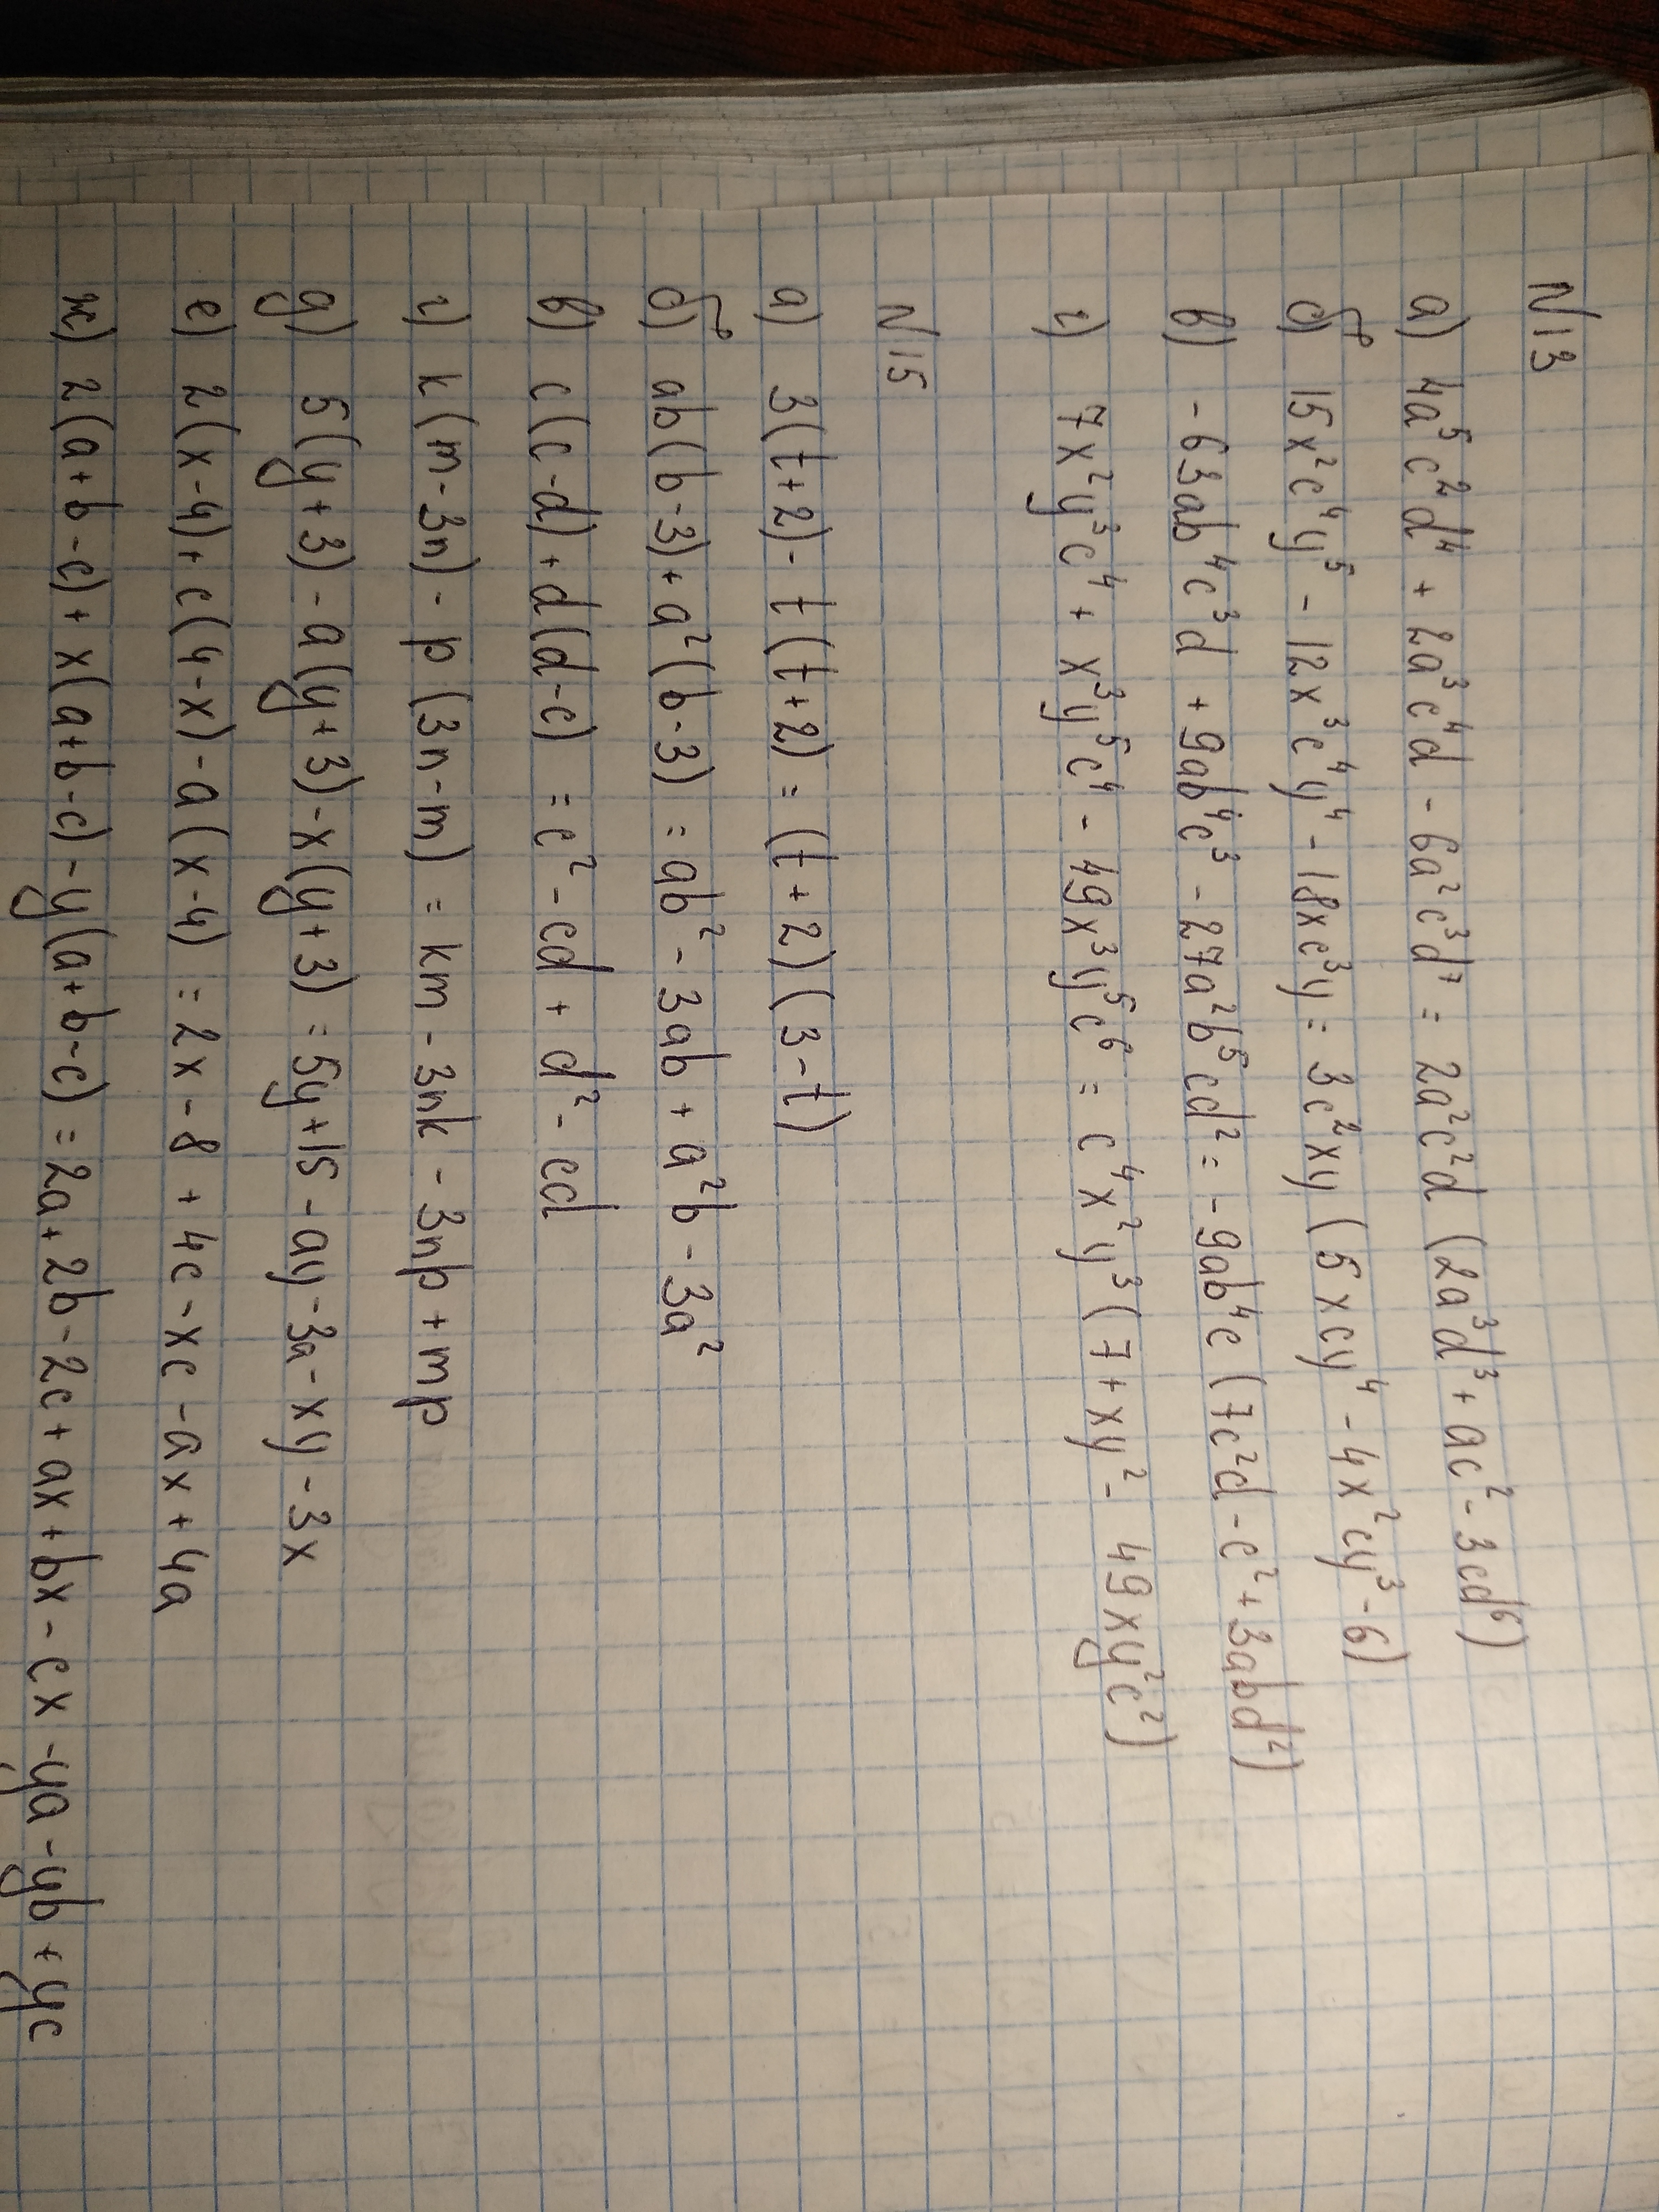 N13
а) 4a⁵c²d⁴ + 2a³c⁴d - 6a²c³d⁷ = 2a²c²d (2a³d³ + ac² - 3cd⁶)
б) 15x²c⁴y⁵ - 12x³c⁴y⁴ - 18xc³y = 3c²xy (5xcy⁴ - 4x²cy³ - 6)
в) -63ab⁴c³d + 9ab⁴c³ - 27a²b⁵cd² = -9ab⁴c (7c²d - c² + 3abd²)
г) 7x²y³c⁴ + x³y⁵c⁴ - 49x³y⁵c⁶ = c⁴x²y³ (7 + xy² - 49xy²c²)
N15
а) 3(t+2) - t(t+2) = (t+2)(3-t)
б) ab(b-3) + a²(b-3) = ab² - 3ab + a²b - 3a²
в) c(c-d) + d(d-c) = c² - cd + d² - cd
г) k(m-3n) - p(3n-m) = km - 3nk - 3np + mp
д) 5(y+3) - a(y+3) - x(y+3) = 5y + 15 - ay - 3a - xy - 3x
е) 2(x-4) + c(4-x) - a(x-4) = 2x - 8 + 4c - xc - ax + 4a
ж) 2(a+b-c) + x(a+b-c) - y(a+b-c) = 2a + 2b - 2c + ax + bx - cx - ya - yb + yc